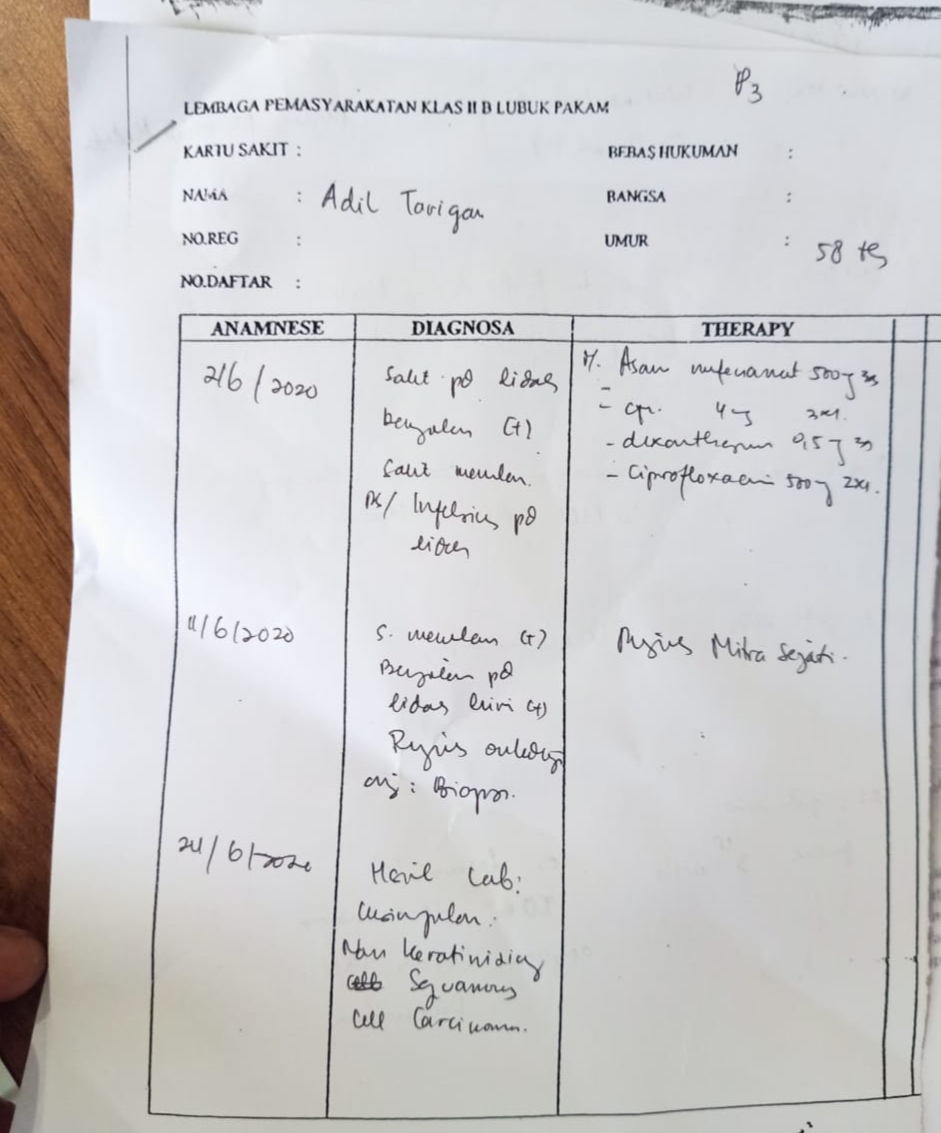 P3
LEMBAGA PEMASYARAKATAN KLAS II B LUBUK PAKAM
KARTU SAKIT :
BEBAS HUKUMAN :
NAMA : Adil Tarigan
BANGSA :
NO.REG :
UMUR : 58 th
NO.DAFTAR :
ANAMNESE DIAGNOSA THERAPY
2/6/2020
Sakit pd lidah
Bengkak (+)
Sakit menelan.
Infeksius pd
lidah
Asam mefenamat 500 3x1
- 4 3x1.
- 0,5 3x1
- Ciprofloxacin 500 2x1.
11/6/2020
S. menelan (+)
pd
lidah kiri (+)
Rujuk onkologi
anj : Biopsi.
Rujuk Mitra Sejati.
24/6/2020
Hasil Lab:
Kesimpulan:
Non Keratinizing
Squamous
Cell Carcinoma.